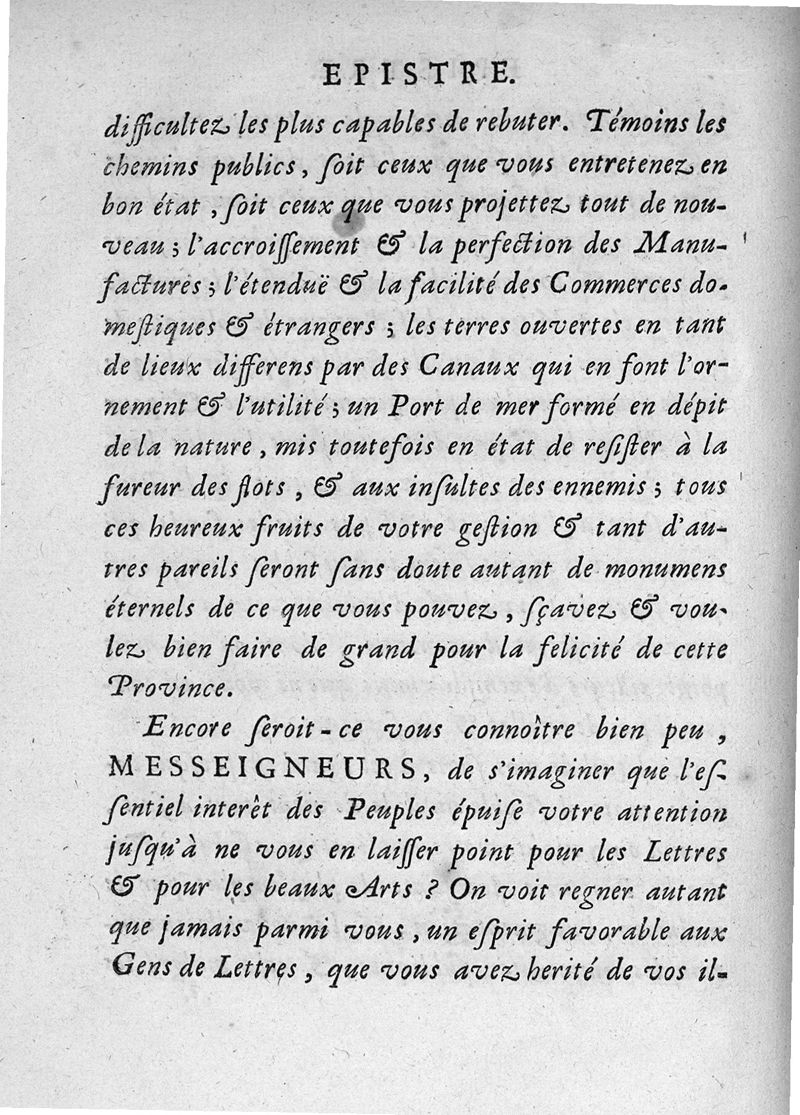 EPISTRE.
difficultez les plus capables de rebuter. Témoins les
chemins publics, ſoit ceux que vous entretenez en
bon état, ſoit ceux que vous projettez tout de nou-
veau; l'accroiſſement & la perfection des Manu-
factures; l'étenduë & la facilité des Commerces do-
meſtiques & étrangers; les terres ouvertes en tant
de lieux differens par des Canaux qui en font l'or-
nement & l'utilité; un Port de mer formé en dépit
de la nature, mis toutefois en état de reſiſter à la
fureur des flots, & aux inſultes des ennemis; tous
ces heureux fruits de votre geſtion & tant d'au-
tres pareils ſeront ſans doute autant de monumens
éternels de ce que vous pouvez, ſçavez & vou-
lez bien faire de grand pour la felicité de cette
Province.
Encore ſeroit-ce vous connoître bien peu,
MESSEIGNEURS, de s'imaginer que l'eſ-
ſentiel interêt des Peuples épuiſe votre attention
juſqu'à ne vous en laiſſer point pour les Lettres
& pour les beaux Arts? On voit regner autant
que jamais parmi vous, un eſprit favorable aux
Gens de Lettres, que vous avez herité de vos il-